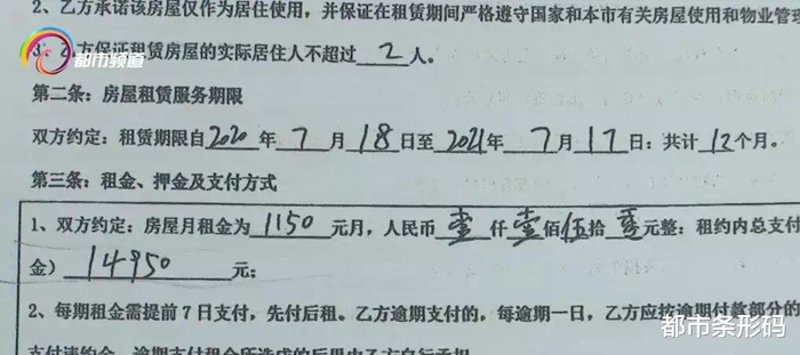 2、乙方承诺该房屋仅作为居住使用，并保证在租赁期间严格遵守国家和本市有关房屋使用和物业管理
3、乙方保证租赁房屋的实际居住人不超过 2 人。
都市频道
第二条：房屋租赁服务期限
双方约定：租赁期限自2020年 7 月 18日至 2021年 7 月 17 日：共计 12个月。
第三条：租金、押金及支付方式
1、双方约定：房屋月租金为 1150 元月，人民币 壹 仟壹佰伍拾 零元整：租约内总支付
金） 14950 元;
2、每期租金需提前7日支付，先付后租。乙方逾期支付的，每逾期一日，乙方应按逾期付款部分的
都市条形码